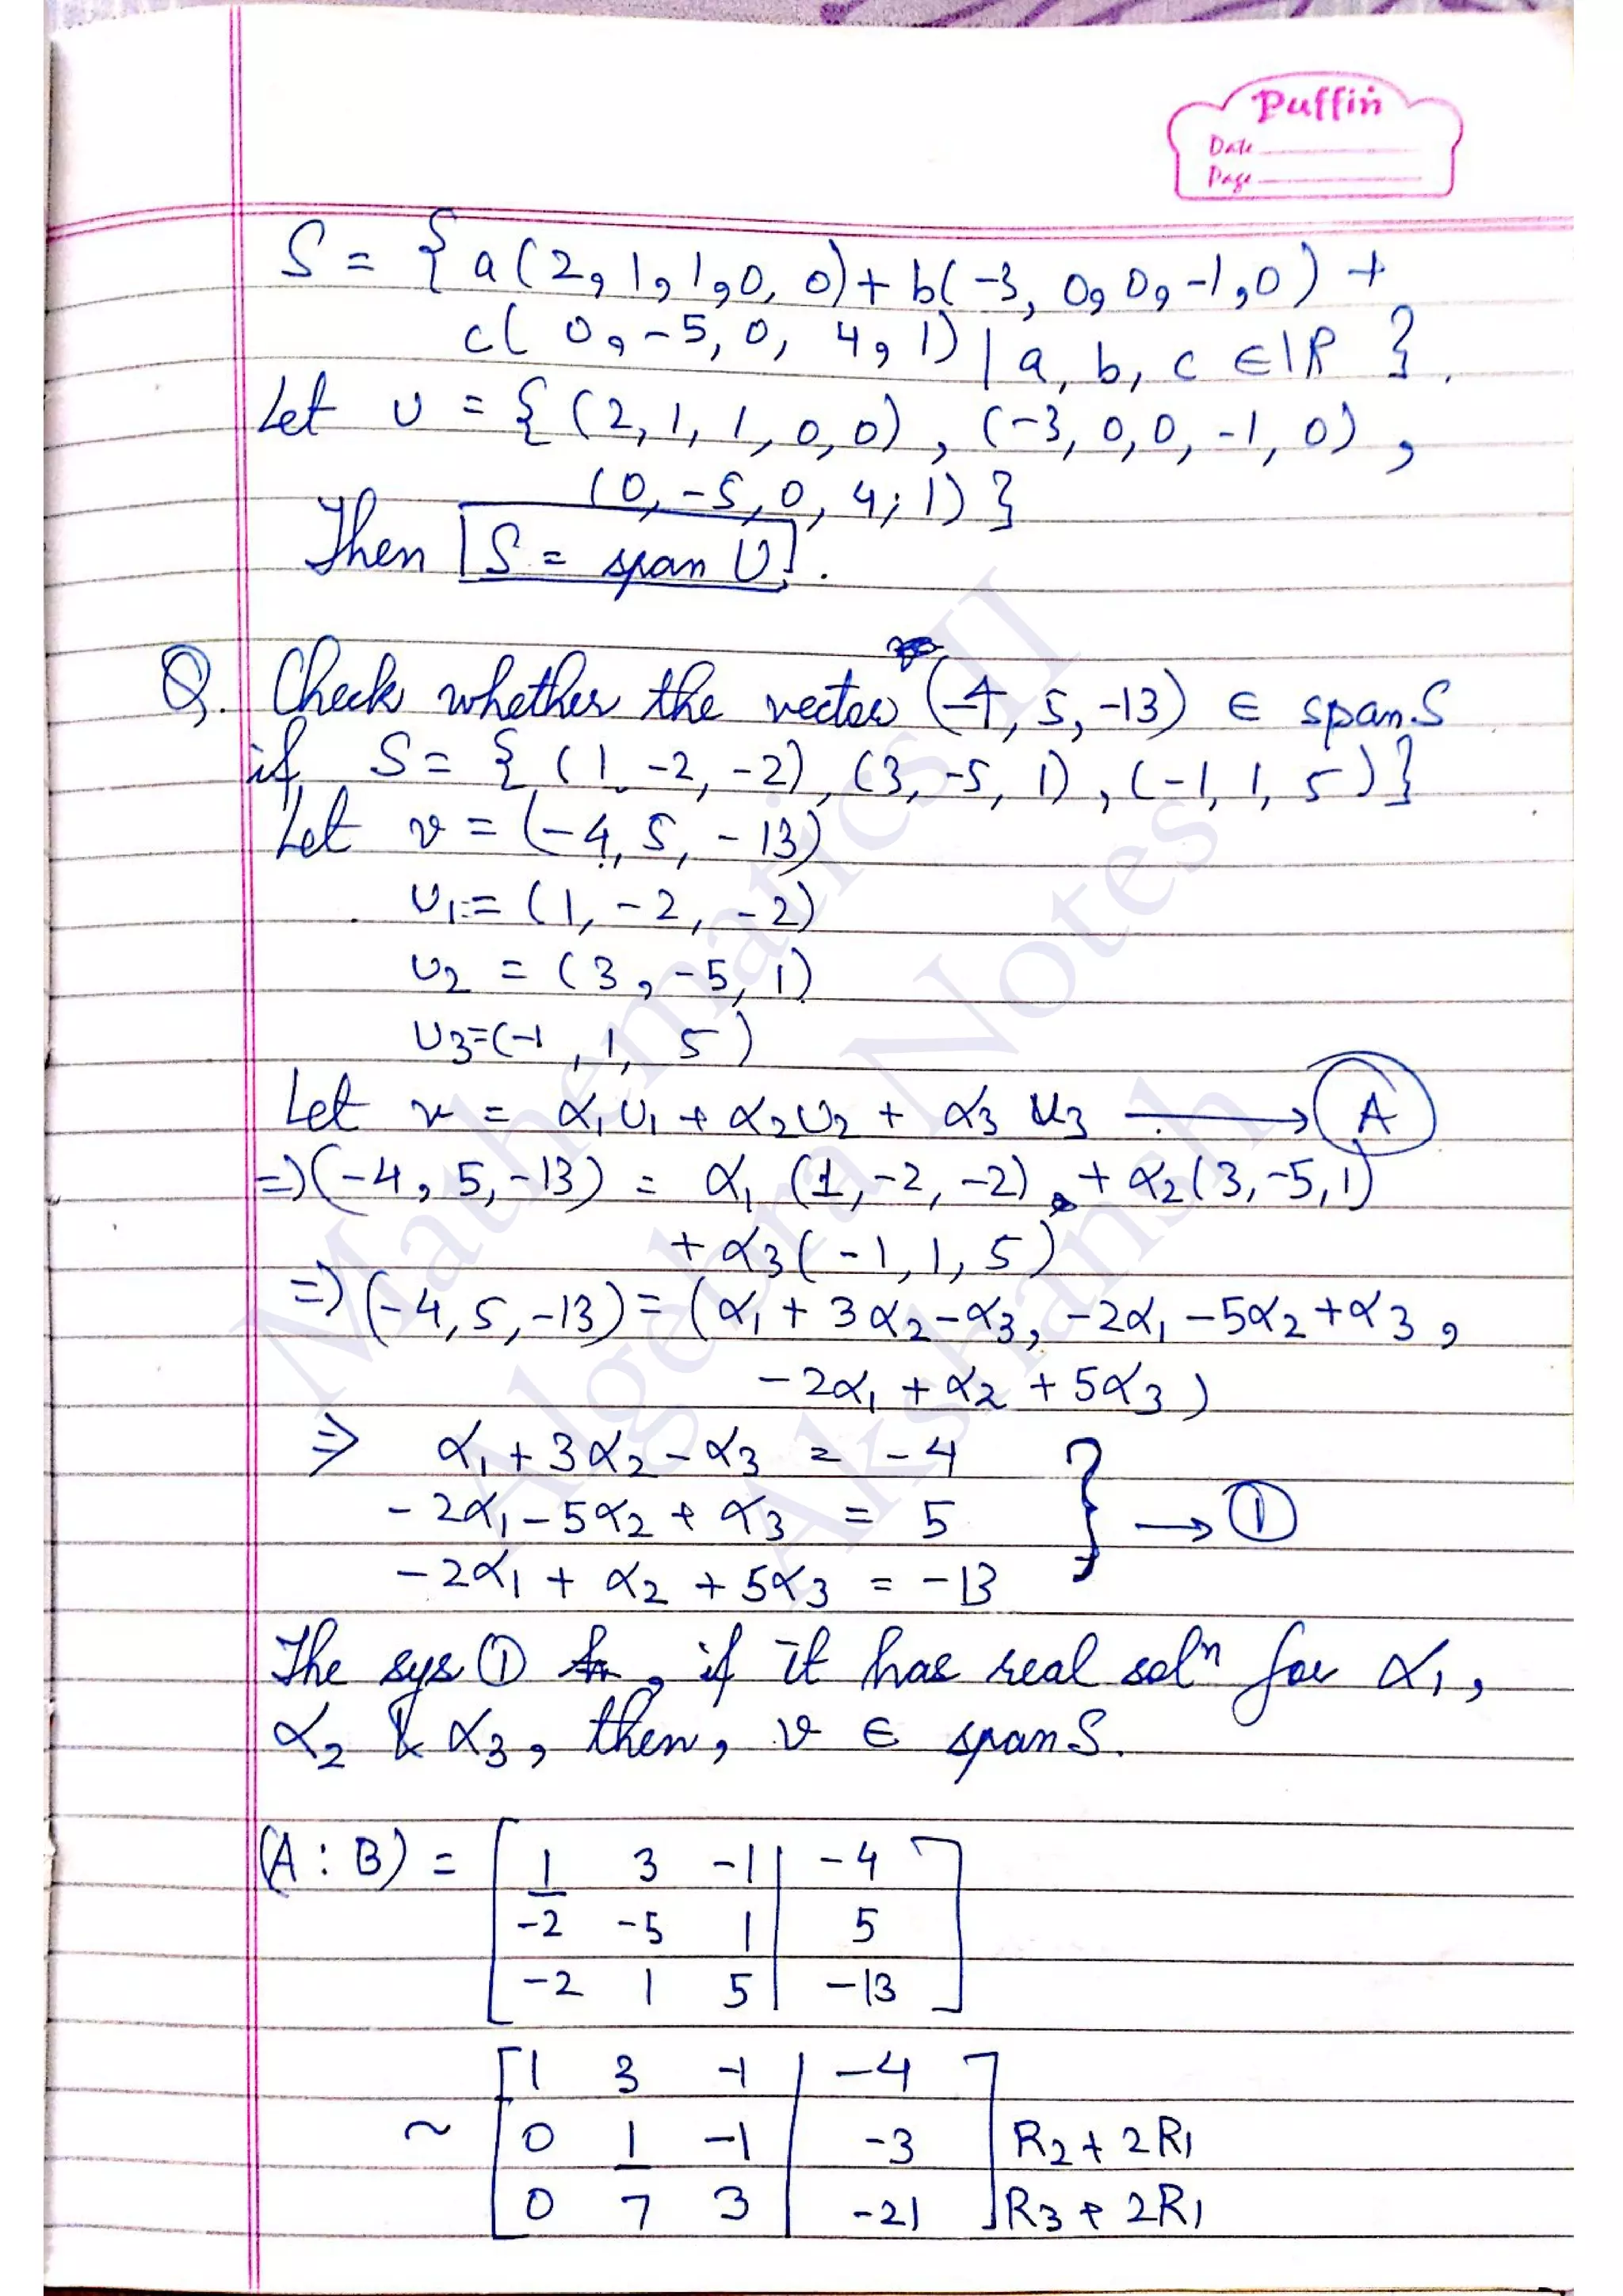 Puffin
Date
Page
S = { a(2, 1, 1, 0, 0) + b(-3, 0, 0, -1, 0) +
c( 0, -5, 0, 4, 1) | a, b, c ∈ IR }.
Let U = { (2, 1, 1, 0, 0), (-3, 0, 0, -1, 0),
(0, -5, 0, 4, 1) }
Then S = span U.
Q. Check whether the vector (-4, 5, -13) ∈ span S
if S = { (1, -2, -2), (3, -5, 1), (-1, 1, 5) }
Let v = (-4, 5, -13)
U1 = (1, -2, -2)
U2 = (3, -5, 1)
U3 = (-1, 1, 5)
Let v = α1 U1 + α2 U2 + α3 U3 → A
=> (-4, 5, -13) = α1 (1, -2, -2) + α2 (3, -5, 1)
+ α3 (-1, 1, 5)
=> (-4, 5, -13) = (α1 + 3α2 - α3, -2α1 - 5α2 + α3,
-2α1 + α2 + 5α3)
=> α1 + 3α2 - α3 = -4
-2α1 - 5α2 + α3 = 5 } → 1
-2α1 + α2 + 5α3 = -13
The sys 1 , if it has real solⁿ for α1,
α2 & α3, then, v ∈ span S.
(A : B) = [ 1 3 -1 | -4 ]
-2 -5 1 | 5
-2 1 5 | -13
~ [ 1 3 -1 | -4 ]
0 1 -1 | -3 R2 + 2R1
0 7 3 | -21 R3 + 2R1
Mathematics II
Algebra Notes
Akshansh